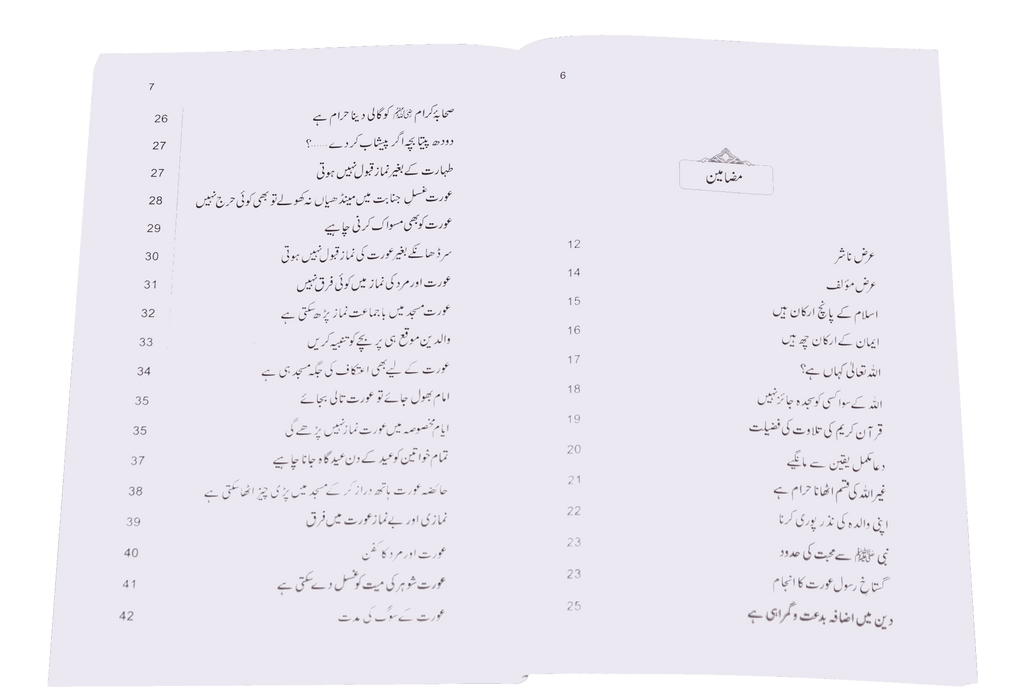 6
مضامین
عرض ناشر 12
عرض مؤلف 14
اسلام کے پانچ ارکان ہیں 15
ایمان کے ارکان چھ ہیں 16
اللہ تعالیٰ کہاں ہے؟ 17
اللہ کے سوا کسی کو سجدہ جائز نہیں 18
قرآن کریم کی تلاوت کی فضیلت 19
دعا مکمل یقین سے مانگیے 20
غیر اللہ کی قسم اٹھانا حرام ہے 21
اپنی والدہ کی نذر پوری کرنا 22
نبی ﷺ سے محبت کی حدود 23
گستاخ رسول عورت کا انجام 23
دین میں اضافہ بدعت و گمراہی ہے 25
7
صحابۂ کرام ﷺ کو گالی دینا حرام ہے 26
دودھ پیتا بچہ اگر پیشاب کر دے......؟ 27
طہارت کے بغیر نماز قبول نہیں ہوتی 27
عورت غسل جنابت میں مینڈھیاں نہ کھولے تو بھی کوئی حرج نہیں 28
عورت کو بھی مسواک کرنی چاہیے 29
سر ڈھانکے بغیر عورت کی نماز قبول نہیں ہوتی 30
عورت اور مرد کی نماز میں کوئی فرق نہیں 31
عورت مسجد میں باجماعت نماز پڑھ سکتی ہے 32
والدین موقع ہی پر بچے کو تنبیہ کریں 33
عورت کے لیے بھی اعتکاف کی جگہ مسجد ہی ہے 34
امام بھول جائے تو عورت تالی بجائے 35
ایام مخصوصہ میں عورت نماز نہیں پڑھے گی 35
تمام خواتین کو عید کے دن عید گاہ جانا چاہیے 37
حائضہ عورت ہاتھ دراز کر کے مسجد میں پڑی چیز اٹھا سکتی ہے 38
نمازی اور بے نماز عورت میں فرق 39
عورت اور مرد کا کفن 40
عورت شوہر کی میت کو غسل دے سکتی ہے 41
عورت کے سوگ کی مدت 42